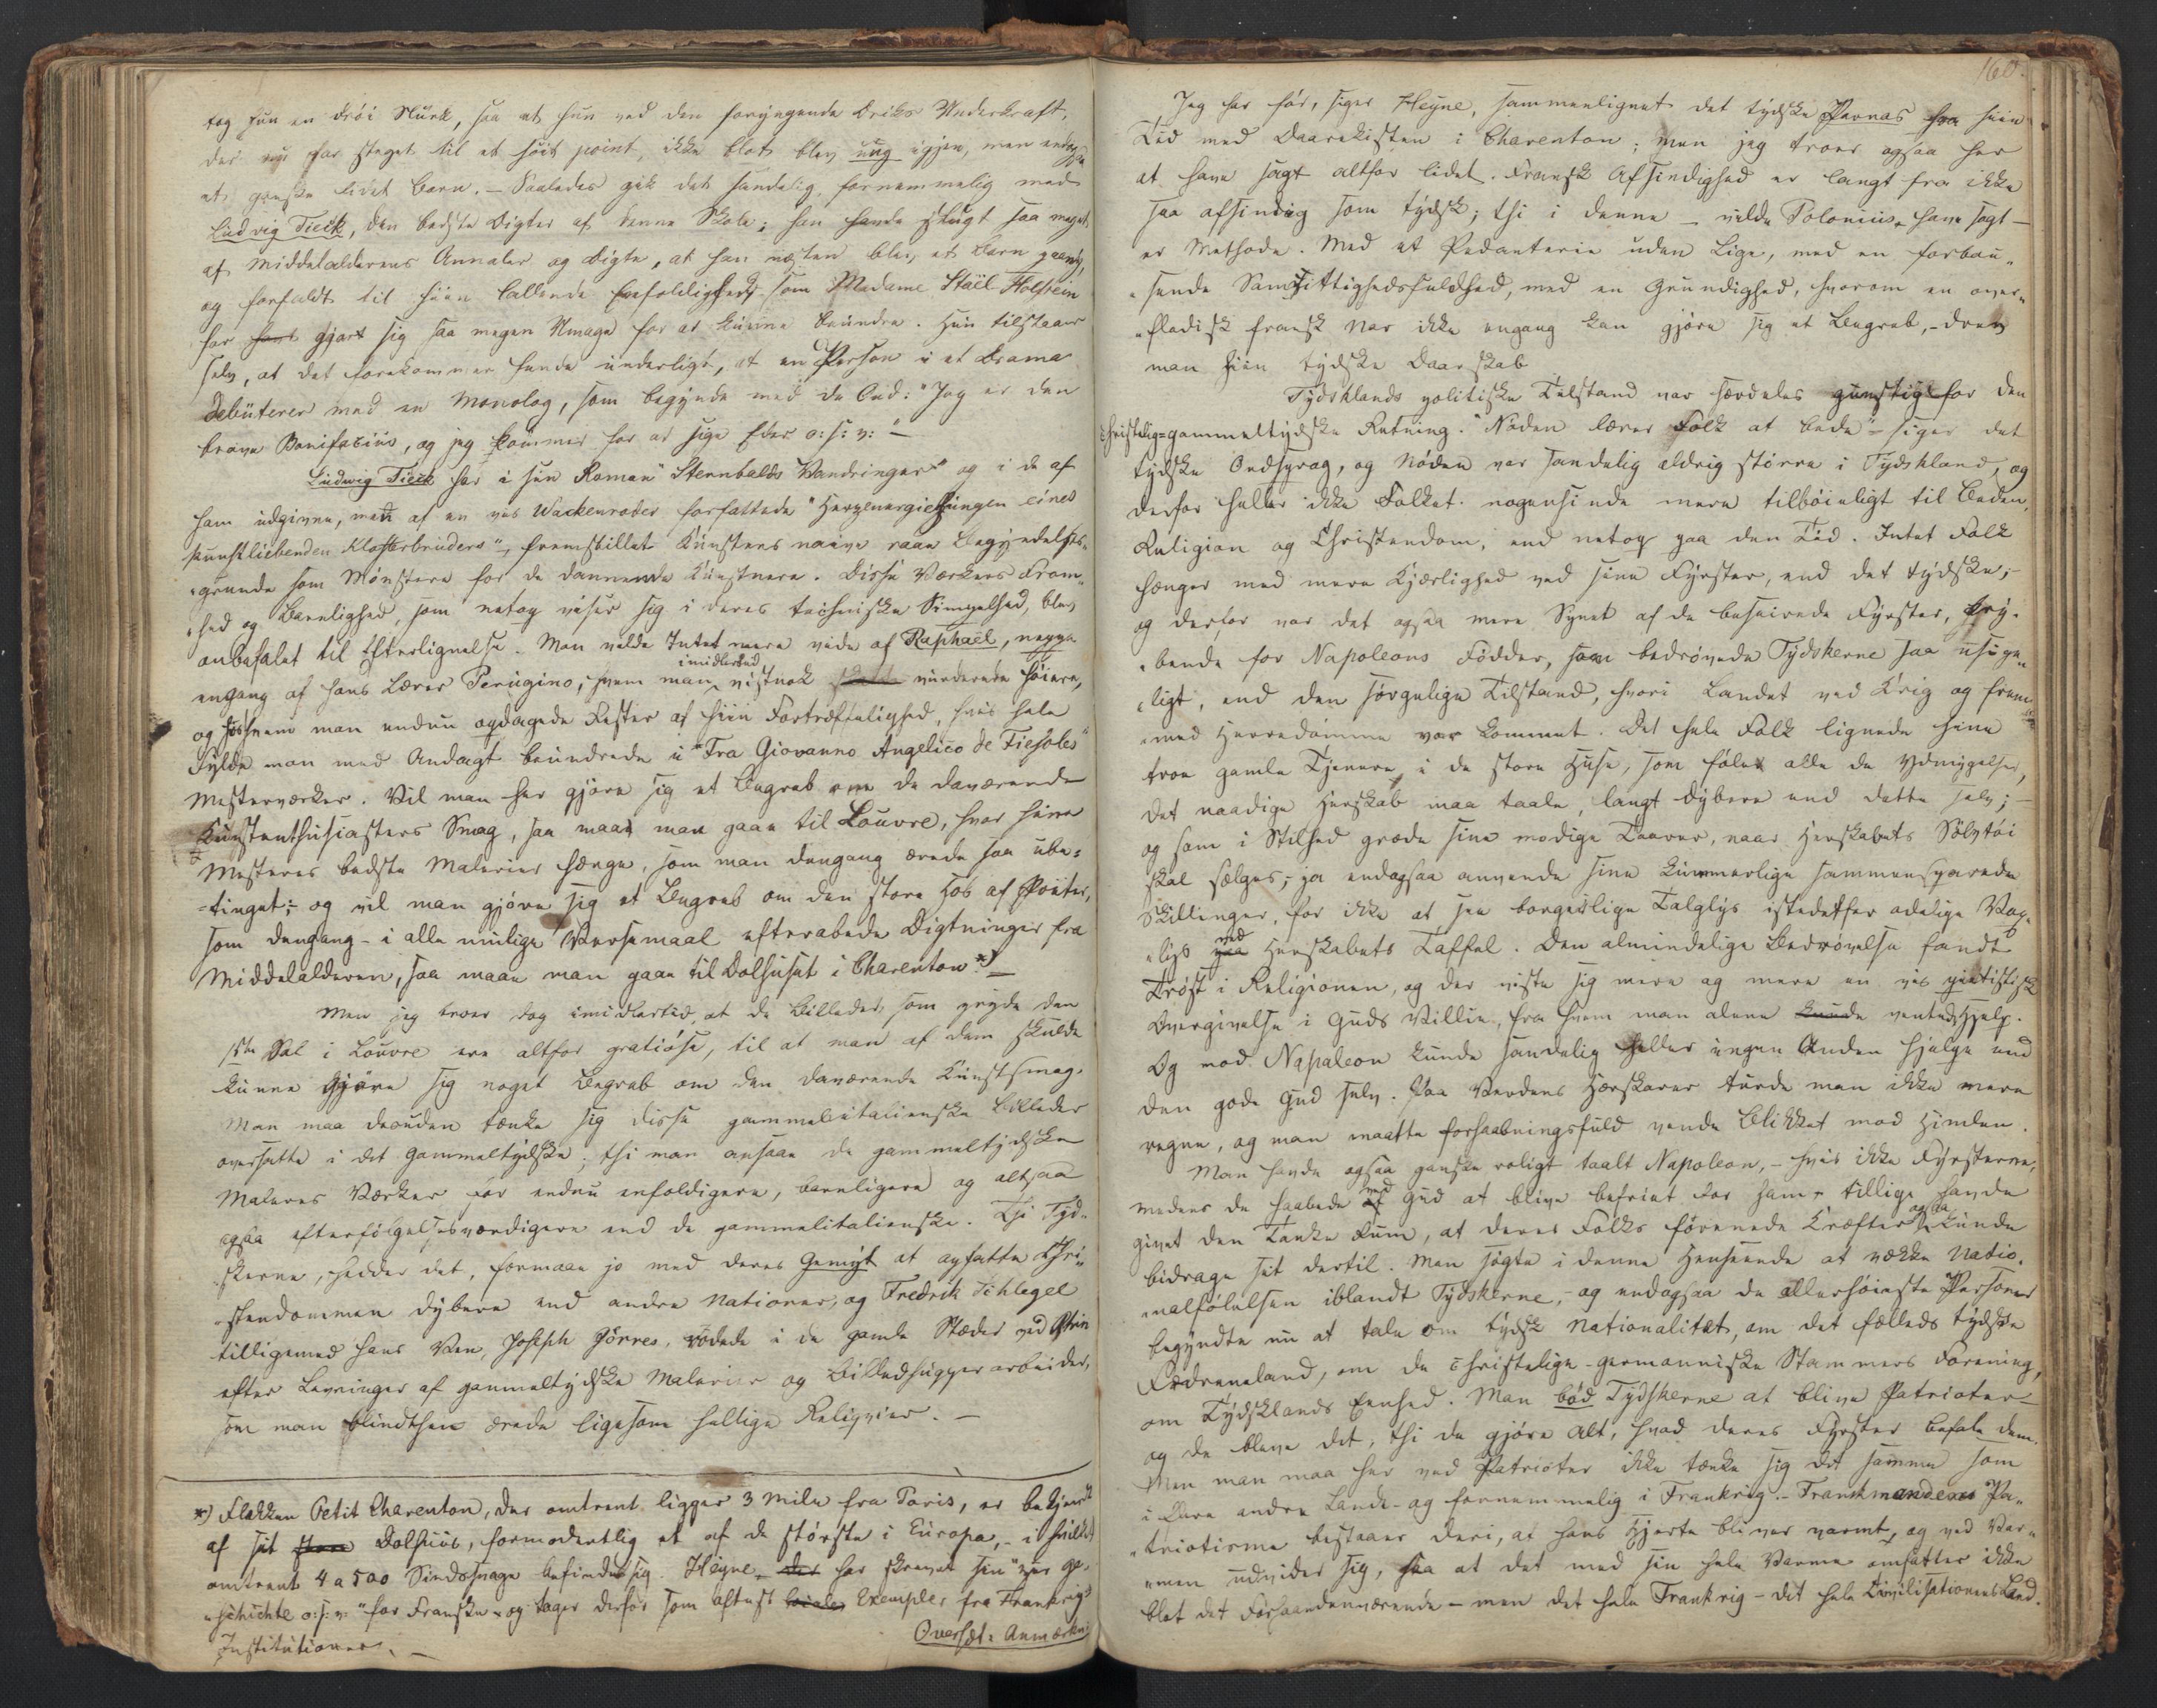 tog hun en drøi Slurk, saa at hun ved den foryngende Driks Underkraft,
der nu var steget til et høit point, ikke blot blev ung igjen, men endogsaa
et ganske lidet Barn. – Saaledes gik det sandelig fornemmelig med
Ludvig Tieck, den bedste Digter af denne Skole; han havde slugt saa meget
af Middelalderens Annaler og Digte, at han næsten blev et Barn paany,
og forfaldt til hiin lallende Eenfoldighed, som Madame Staël Holstein
har havt gjort sig saa megen Umage for at kunne beundre. Hun tilstaaer
selv, at det forekommer hende underligt, at en Person i et Drama
debuterer med en Monolog, som begynder med de Ord: "Jeg er den
brave Bonifacius, og jeg kommer for at sige Eder o: s: v: " –
Ludwig Tieck har i sin Roman "Sternbalds Vandringer" og i de af
ham udgivne, men af en vis Wackenroder forfattede "Herzensergießungen eines
kunstliebenden Klosterbruders", fremstillet Kunstens naive raae Begyndelses-
grunde som Mønstere for de dannende Kunstnere. Disse Værkers From-
hed og Barnlighed, som netop viser sig i deres techniske Simpelhed, blev
anbefalet til Efterlignelse. Man vilde Intet mere vide af Raphaël, neppe
engang af hans Lærer Perugino, hvem man imidlertid vistnok vurderede høiere,
og hos hvem man endnu opdagede Rester af hiin Fortræffelighed, hvis hele
Fylde man med Andagt beundrede i "Fra Giovanno Angelico de Fiesoles"
Mesterværker. Vil man her gjøre sig et Begreb om de daværende
Kunstenthusiasters Smag, saa maa man gaae til Louvre, hvor hine
Mesteres bedste Malerier hænge, som man dengang ærede saa ube-
tinget; – og vil man gjøre sig et Begreb om den store Hob af Poëter,
som dengang – i alle mulige Versemaal efterabede Digtninger fra
Middelalderen, saa maae man gaae til Dolhuset i Charenton *) –
Men jeg troer dog imidlertid, at de Billeder, som pryde den
1ste Sal i Louvre ere altfor gratiøse, til at man af dem skulde
kunne gjøre sig noget Begreb om den daværende Kunstsmag.
Man maa desuden tænke sig disse gammelitalienske Billeder
oversatte i det Gammeltydske; thi man ansaae de gammeltydske
Maleres Værker for endnu enfoldigere, barnligere og altsaa
ogsaa efterfølgelsesværdigere end de gammelitalienske. Thi Tyd-
skerne, hedder det, formaae jo med deres Gemyt at opfatte Chri-
stendommen dybere end andre Nationer, og Fredrik Schlegel
tilligemed hans Ven, Joseph Görres, rodede i de gamle Stæder ved Rhin
efter Levninger af gammeltydske Malerier og Billedhuggerarbeider,
som man blindthen ærede ligesom hellige Reliqvier. –
*) Flekken Petit Charenton, der omtrent ligger 3 Mile fra Paris, er bekjendt
af sit store Dolhuus, formodentlig et af de største i Europa, – i hvilket
omtrent 4 a 500 Sindssvage befinder sig. Heyne, der har skrevet sin "zur Ge-
schichte o: s: v: " for Franske – og tager derfor som oftest Exempler fra Frankrigs
Institutioner. –
Oversæt: Anmærkn:
160.
Jeg har før, siger Heyne, sammenlignet det tydske Parnas fra hiin
Tid med Daarekisten i Charenton; men jeg troer ogsaa her
at have sagt altfor lidet. Fransk Afsindighed er langt fra ikke
saa afsindig som tydsk; thi i denne – vilde Polonius have sagt –
er Methode. Med et Pedanterie uden Lige, med en forbau-
sende Samvittighedsfuldhed, med en Grundighed, hvorom en over-
fladisk fransk Nar ikke engang kan gjøre sig et Begreb, – drev
man hiin tydske Daarskab
Tydsklands politiske Tilstand var særdeles gunstig for den
christelig-gammeltydske Retning. "Nøden lærer Folk at bede" – siger det
tydske Ordsprog, og Nøden var sandelig aldrig større i Tydskland, og
derfor heller ikke Folket nogensinde mere tilbøieligt til Beden,
Religion og Christendom, end netop paa den Tid. Intet Folk
hænger med mere Kjærlighed ved sine Fyrster, end det tydske; –
og derfor var det ogsaa mere Synet af de beseirede Fyrster, kry-
bende for Napoleons Fødder, som bedrøvede Tydskerne saa usige-
ligt, end den sørgelige Tilstand, hvori Landet ved Krig og frem-
med Herredømme var kommet. Det hele Folk lignede hine
troe gamle Tjenere i de store Huse, som føler alle de Ydmygelser,
det naadige Herskab maa taale, langt dybere end dette selv; –
og som i Stilhed græde sine modige Taarer, naar Herskabets Sølvtøi
skal sælges; – ja endogsaa anvende sine kummerlige sammensparede
Skillinger, for ikke at see borgerlige Talglys istedetfor adelige Vox-
lys ved Herskabets Taffel. Den almindelige Bedrøvelse fandt
Trøst i Religionen, og der viste sig mere og mere en vis pietistisk
Overgivelse i Guds Villie, fra hvem man alene kunde vente Hjelp.
Og mod Napoleon kunde sandelig heller ingen Anden hjelpe end
den gode Gud selv. Paa Verdens Hærskarer turde man ikke mere
regne, og man maatte forhaabningsfuld vende Blikket mod Himlen.
Man havde ogsaa ganske roligt taalt Napoleon, – hvis ikke Fyrsterne,
medens de haabede ved Gud at blive befriet for ham – tillige havde
givet den Tanke Rum, at deres Folks forenede Kræfter ogsaa kunde
bidrage sit dertil. Man søgte i denne Henseende at vække Natio-
nalfølelsen iblandt Tydskerne, – og endogsaa de allerhøieste Personer
begyndte nu at tale om tydsk Nationalitet, om det fælleds tydske
Fædreneland, om de christelige-germanniske Stammers Forening,
om Tydsklands Eenhed. Man bød Tydskerne at blive Patrioter –
og de bleve det, thi de gjøre Alt, hvad deres Fyrster befale dem.
Men man maa her ved Patrioter ikke tænke sig det samme som
i andre Lande – og fornemmelig i Frankrig. – Frankmandens Pa-
triotisme bestaaer deri, at hans Hjerte bliver varmt, og ved Var-
men udvider sig, saa at det med sin hele Varme omfatter ikke
blot det Forhaandenværende – men det hele Frankrig – det hele Civilisationens Land.